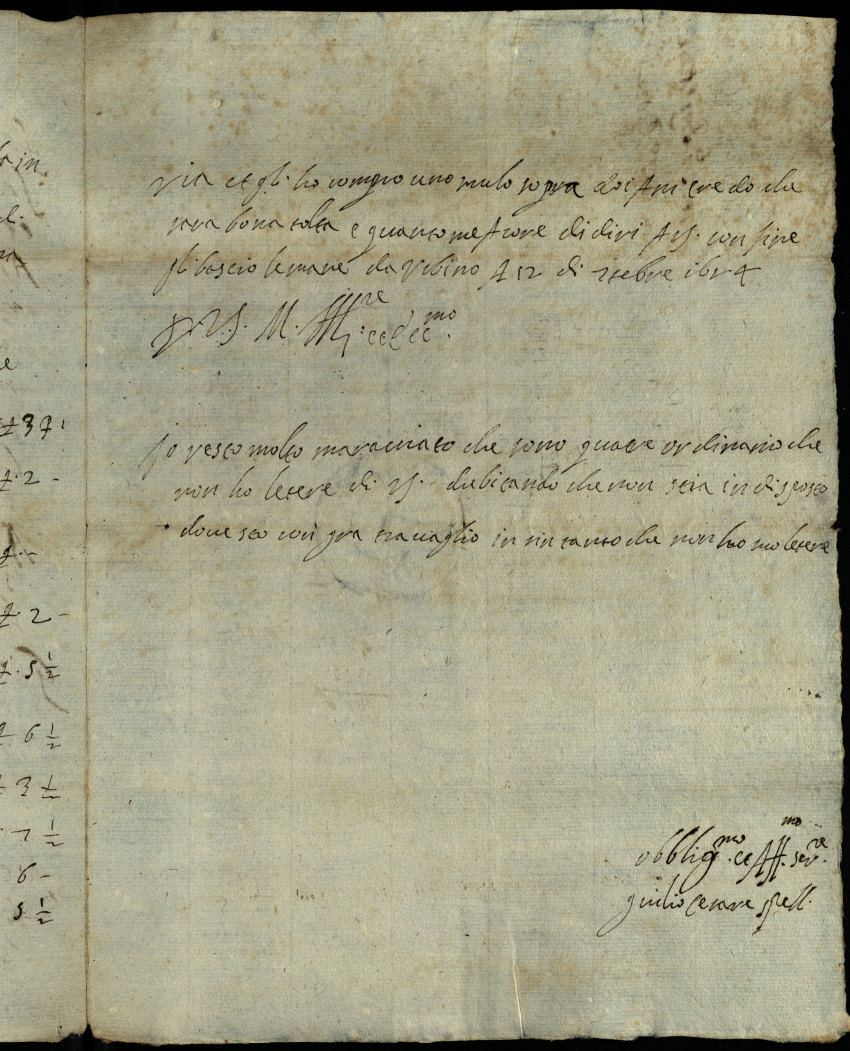 via et gli ho compro uno mulo sopra doi Ani credo che
sara bona colta e quanto me Acore di diri A V.S. con fine
gli bascio le mane da Vrbino A 12 di 
D. V.S. M. Ill.re et Ecc.mo
Io resto molto maraviato che sono quatre ordinario che
non ho letere di V.S. dubitando che non stia indisposto
dove sto con gra travaglio in sin tanto che non ho sue letere
obblig.mo et Aff.mo ser.re
giulio Cesare Spell.
37
2 -
2 -
5 1/2
6 1/2
3 1/2
7 1/2
6 -
5 1/2